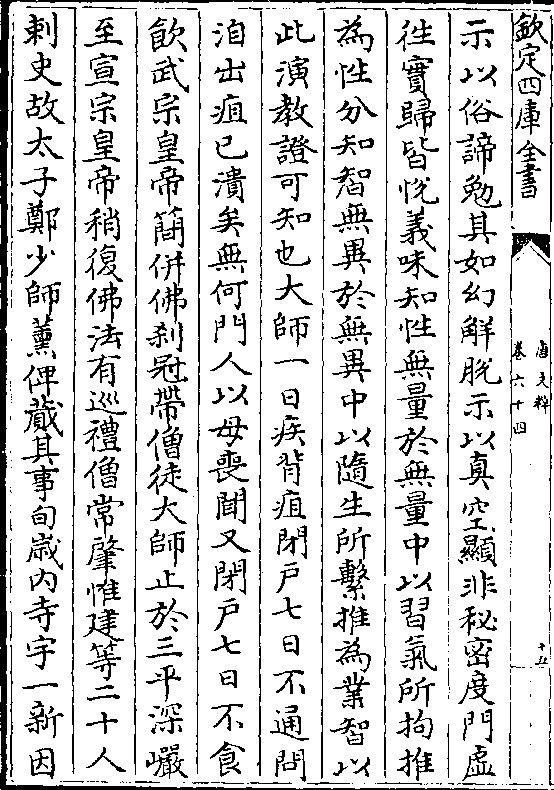 欽定四庫全書
唐文粹
卷六十四
十五
示以俗諦勉其如幻解脱示以真空顯非秘密度門虚
徃實歸皆悦義味知性無量於無量中以習氣所拘推
為性分知智無異於無異中以隨生所繫推為業智以
此演教證可知也大師一日疾背疽閉户七日不通問
洎出疽已潰矣無何門人以母喪聞又閉户七日不食
飲武宗皇帝簡併佛刹冠帶僧徒大師止於三平深巖
至宣宗皇帝稍復佛法有巡禮僧常肇惟建等二十人
刺史故太子鄭少師薫俾蕆其事旬歲内寺宇一新因